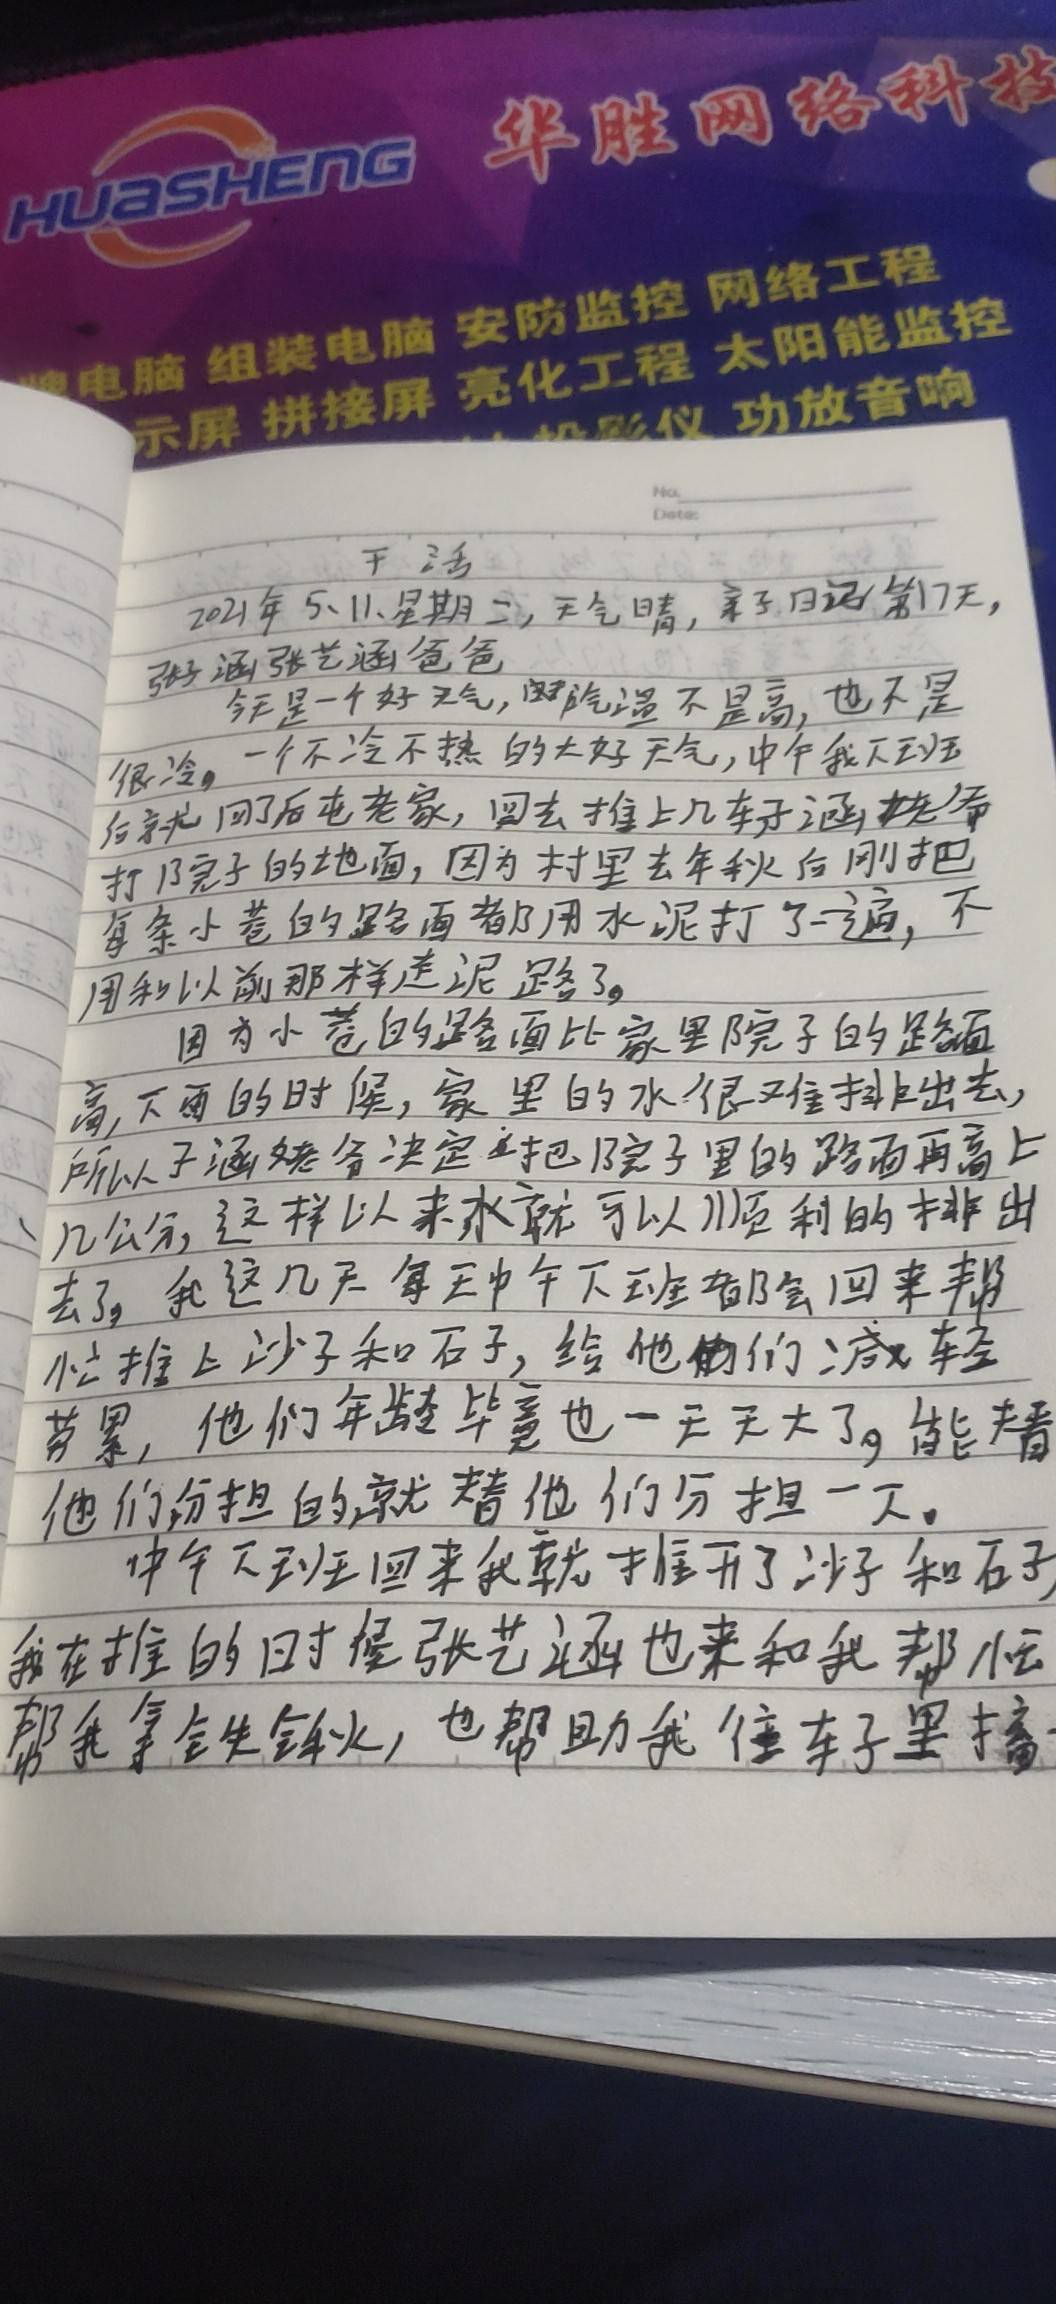 HUASHENG
华胜网络科技
牌电脑 组装电脑 安防监控 网络工程
示屏 拼接屏 亮化工程 太阳能监控
投影仪 功放音响
No.
Date:
干活
2021年 5、11、星期二，天气晴，亲子日记第17天，
张子涵张艺涵爸爸
今天是一个好天气，气温不是高，也不是
很冷。一个不冷不热的大好天气，中午我下班
后就回了后屯老家，回去推上几车子涵
打院子的地面，因为村里去年秋后刚把
每条小巷的路面都用水泥打了一遍，不
用和以前那样走泥路了。
因为小巷的路面比家里院子的路面
高，下雨的时候，家里的水很难排出去，
所以子涵决定把院子里的路面再高上
几公分，这样以来水就可以顺利的排出
去了。我这几天每天中午下班都会回来帮
忙推上沙子和石子，给他们减轻
劳累，他们年龄毕竟也一天天大了。能替
他们分担的就替他们分担一下。
中午下班回来我就推开了沙子和石子，
我在推的时候张艺涵也来和我帮忙
帮我拿铁锹，也帮助我往车子里